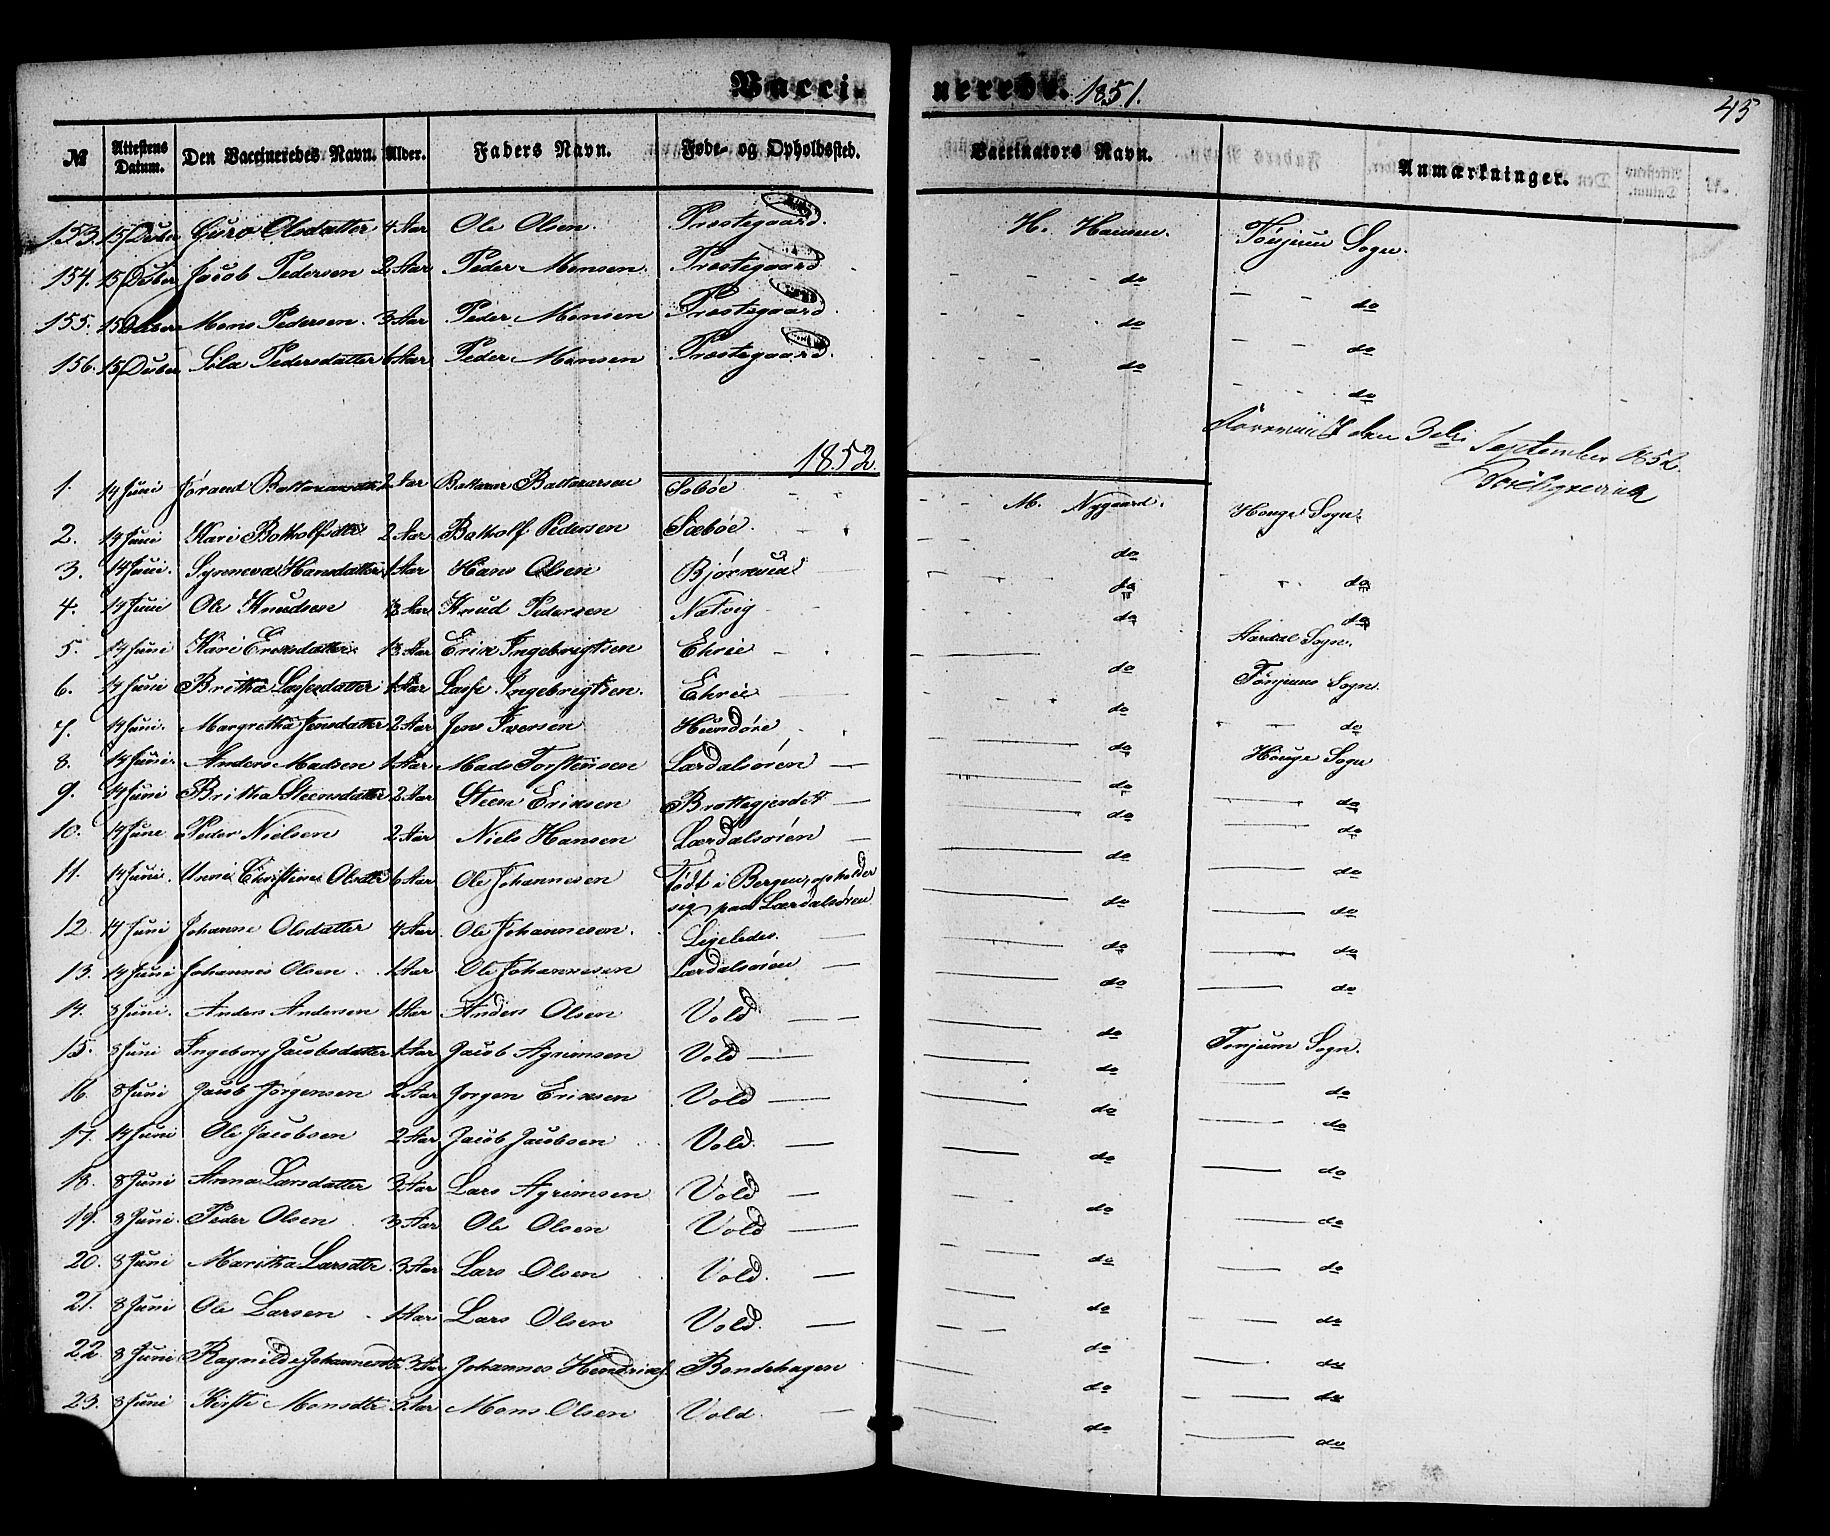 Vacci- nerede. 1851.
45
№ Attestens Datum. Den Vaccineredes Navn. Alder. Faders Navn. Føde- og Opholdssted. Vaccinators Navn. Anmærkninger.
153. 15 Decber Guro Olsdatter 4 Aar Ole Olsen. Præstegaard. H. Hansen. Tønjum Sogn.
154. 15 Decber Jacob Pedersen 2 Aar Peder Monsen. Præstegaard - - - do - - do
155. 15 Decber Mons Pedersen. 3 Aar Peder Monsen Præstegaard. - - - do - - do
156. 15 Decber Pedersdatter 6 Aar Peder Monsen Præstegaard. - - - do - - do
den 3die September 1852.
1852.
1. 14 Juni 2 Aar Sæbøe - - M. Nygaard. Houge Sogn.
2. 14 Juni Kari 2 Aar Botholf Pedersen Sæbøe - - do - - do
3. 14 Juni. Synneva Hansdatter 1 Aar Hans Olsen do do
4. 14 Juni Ole Knudsen Aar Knud Pedersen Natvig - - do Aardal Sogn.
5. 14 Juni Kari Eriksdatter 13 Aar Erik Ingebrigtsen Ehrie - do Tønjum Sogn.
6. 14 Juni Britha Lassesdatter 1 Aar Lasse Ingebrigtsen. Ehrie do - - do
7. 14 Juni. Margretha Jensdatter 2 Aar Jens Iversen do Houge Sogn
8. 14 Juni. Anders Madsen 1 Aar Mads Torstensen Lærdalsøren — do — do
9. 14 Juni Britha Steensdatter 2 Aar Steen Eriksen Brattegjerdet — do — do
10. 14 June Peder Nielsen 2 Aar Niels Hansen Lærdalsøren — do — do
11. 14 Juni. Unni Christine Olsdtr 6 Aar Ole Johannesen Født i Bergen, opholder
sig paa Lærdalsøren. do — do
12. 14 Juni Johanne Olsdatter 4 Aar. Ole Johannesen. Ligeledes. — do — do
13. 14 Juni Johannes Olsen. 1 Aar Ole Johannesen Lærdalsøren — do — do
14. 8 Juni. Anders Andersen 1 Aar Anders Olsen Vold — — do Tønjum Sogn.
15. 8 Juni Ingeborg Jacobsdatter 1 Aar Jacob Agrimsen Vold — do — do
16. 8 Juni Jacob Jørgensen 2 Aar Jørgen Eriksen Vold — do — do
17. 14 Juni Ole Jacobsen 2 Aar Jacob Jacobsen Vold. — do — do
18. 8 Juni Anna Larsdatter 3 Aar Lars Agrimsen Vold — do — do
19. 8 Juni. Peder Olsen 3 Aar Ole Olsen Vold — do — do
20. 8 Juni Maritha Larsdtr. 3 Aar Lars Olsen Vold. — do — do
21. 8 Juni Ole Larsen 1 Aar Lars Olsen Vold. — do — do
22. 8 Juni Ragnilde Johannesdtr 3 Aar Johannes Bondehagen do — do
23. 8 Juni Kirsti Monsdtr 3 Aar Mons Olsen Vold. — do — do